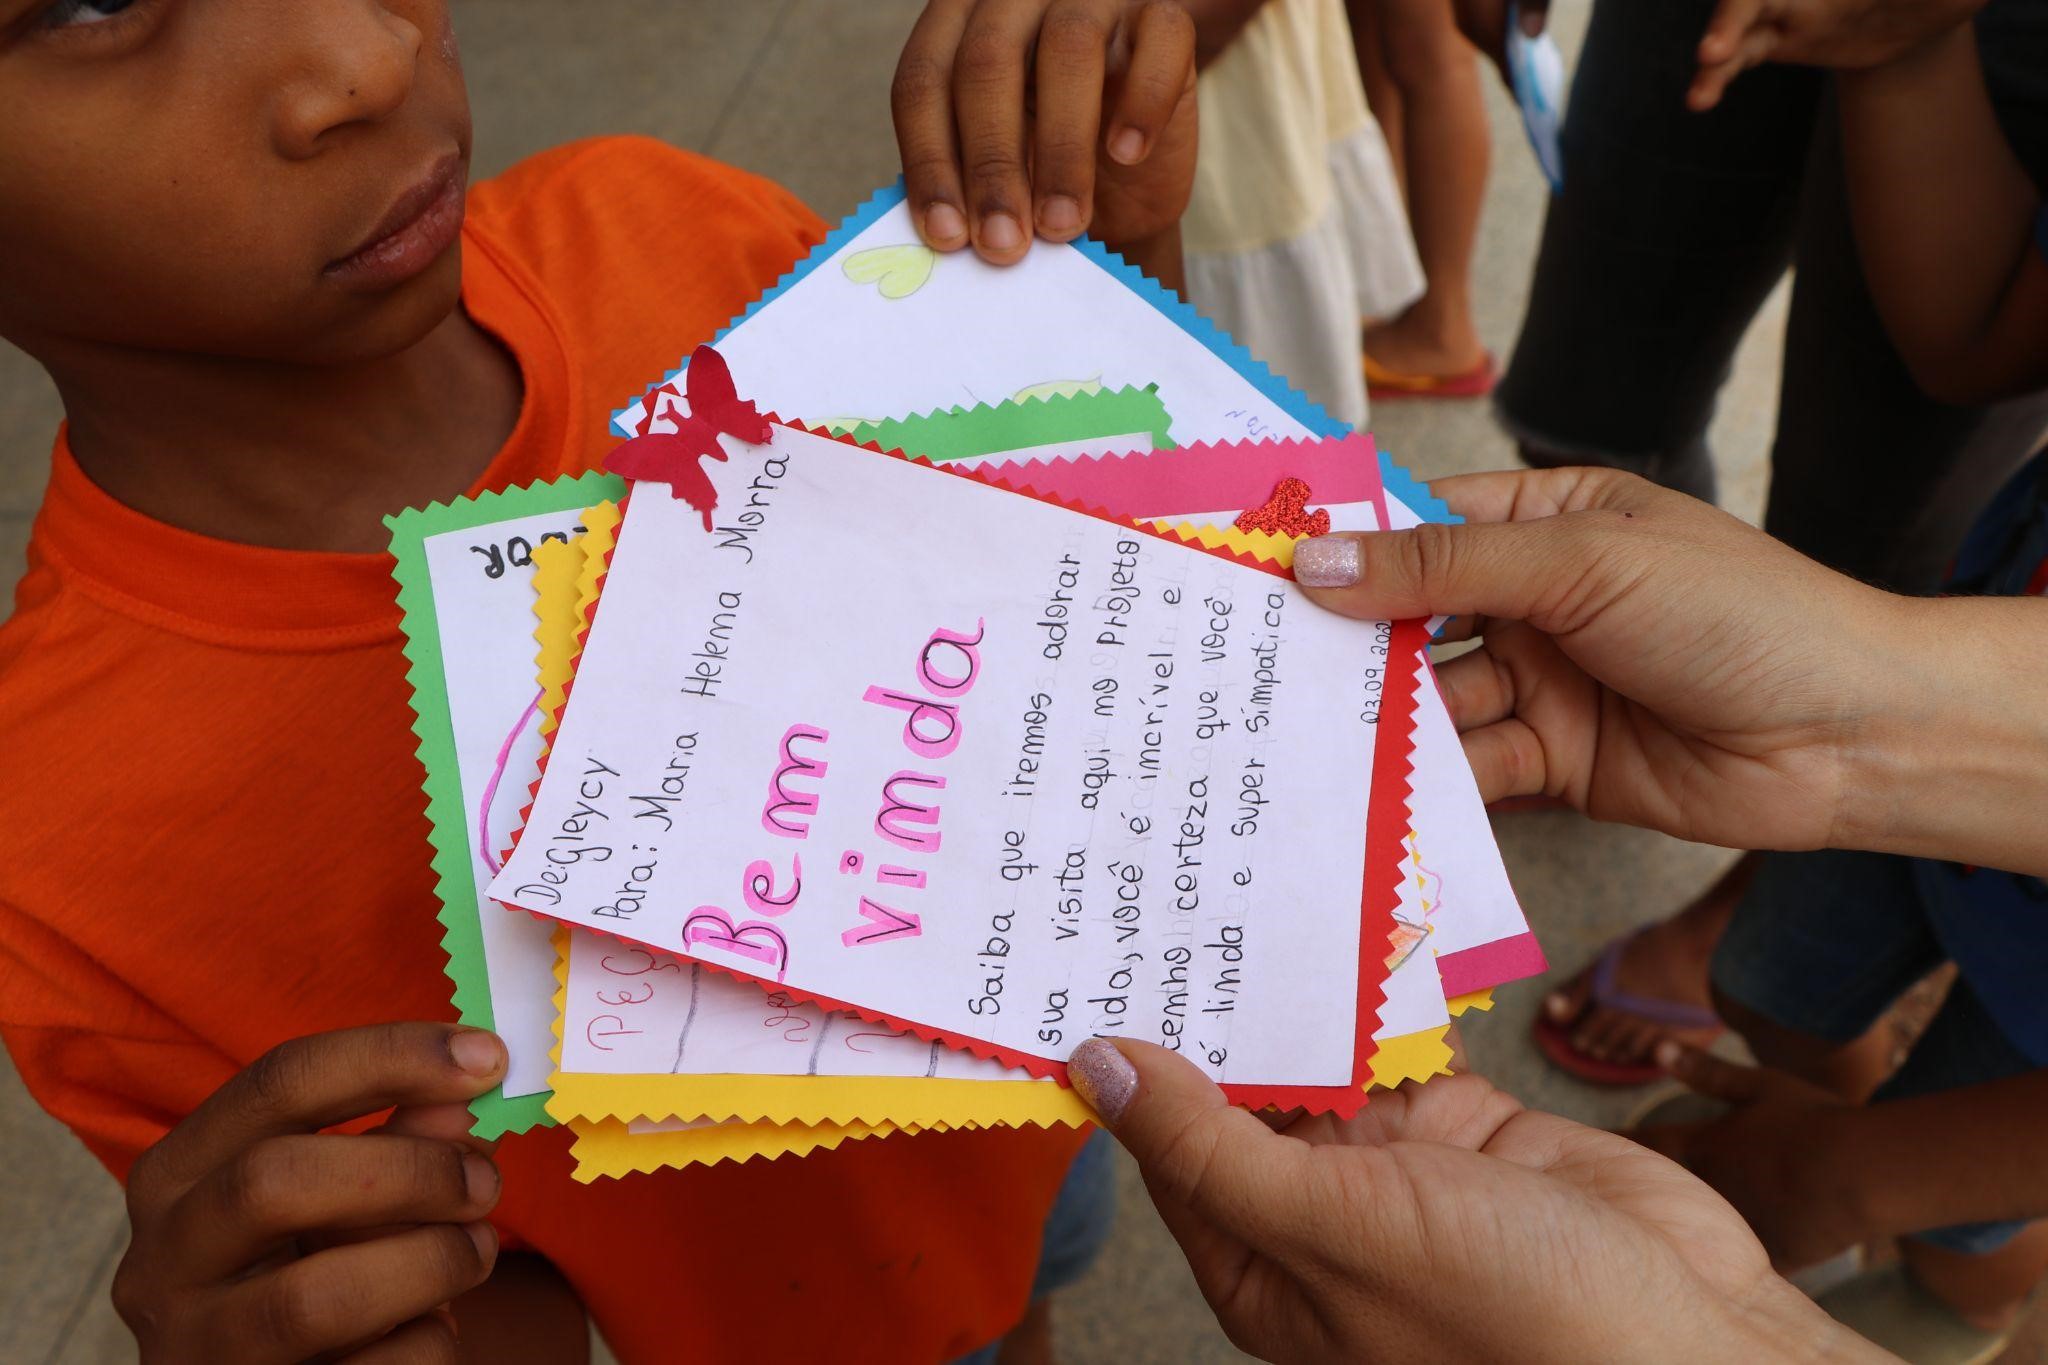 Deigleycy
Para: Maria Helena Morra
Bem
vinda
Saiba que iremos adorar
sua visita aqui no projeto
vida, você é incrível e
tenho certeza que você
é linda e super simpatica
03.09.202